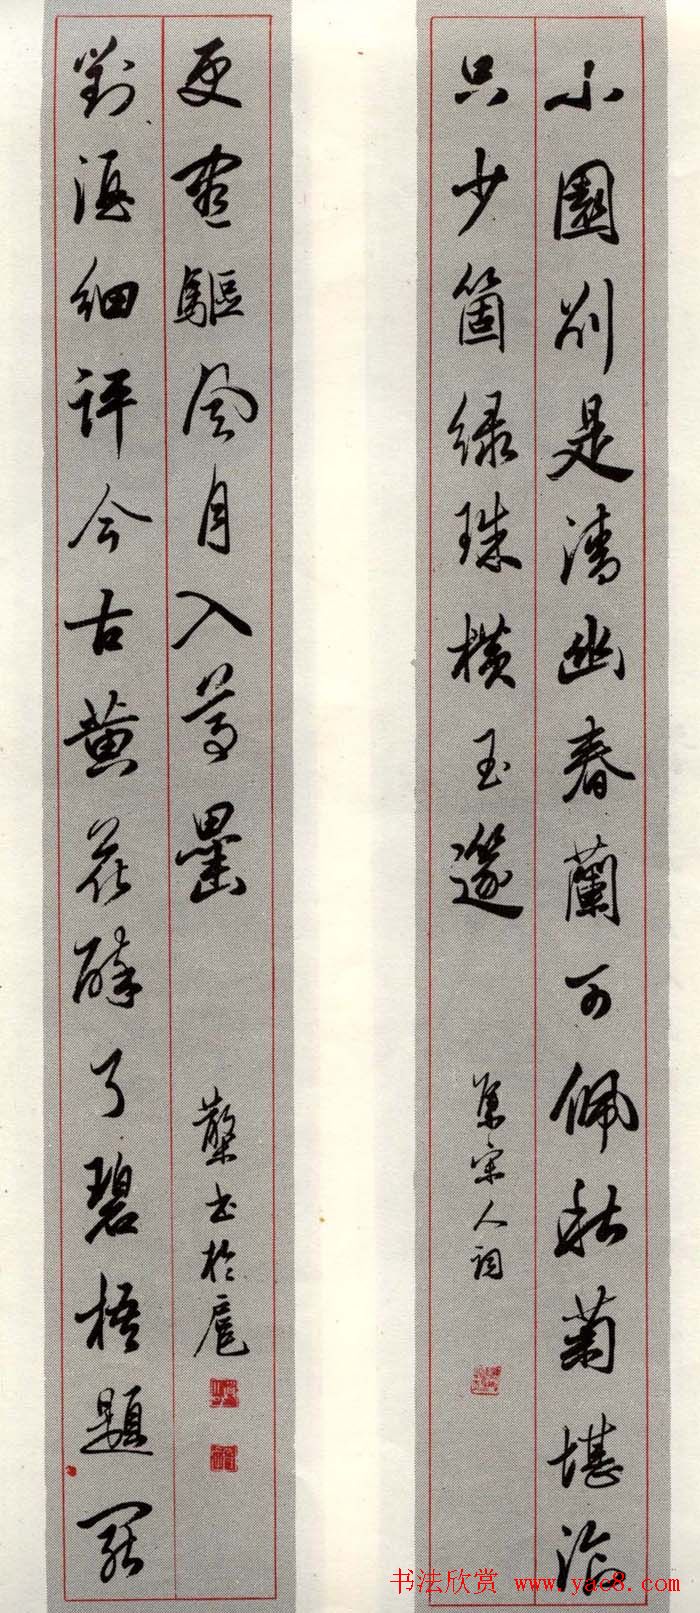 小園別是清幽春蘭可佩秋菊堪湌
只少箇綠珠橫玉篴
集宋人詞
對酒細評今古黃花醉了碧梧題罷
更驅風月入尊罍
書於扈
书法欣赏 www.yac8.com